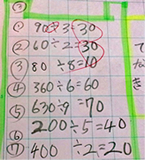 ①
② 90÷3=30
② 60÷2=30
③ 80÷8=10
④ 360÷6=60
⑤ 630÷9=70
⑥ 200÷5=40
⑦ 400÷2=20
て
な
き